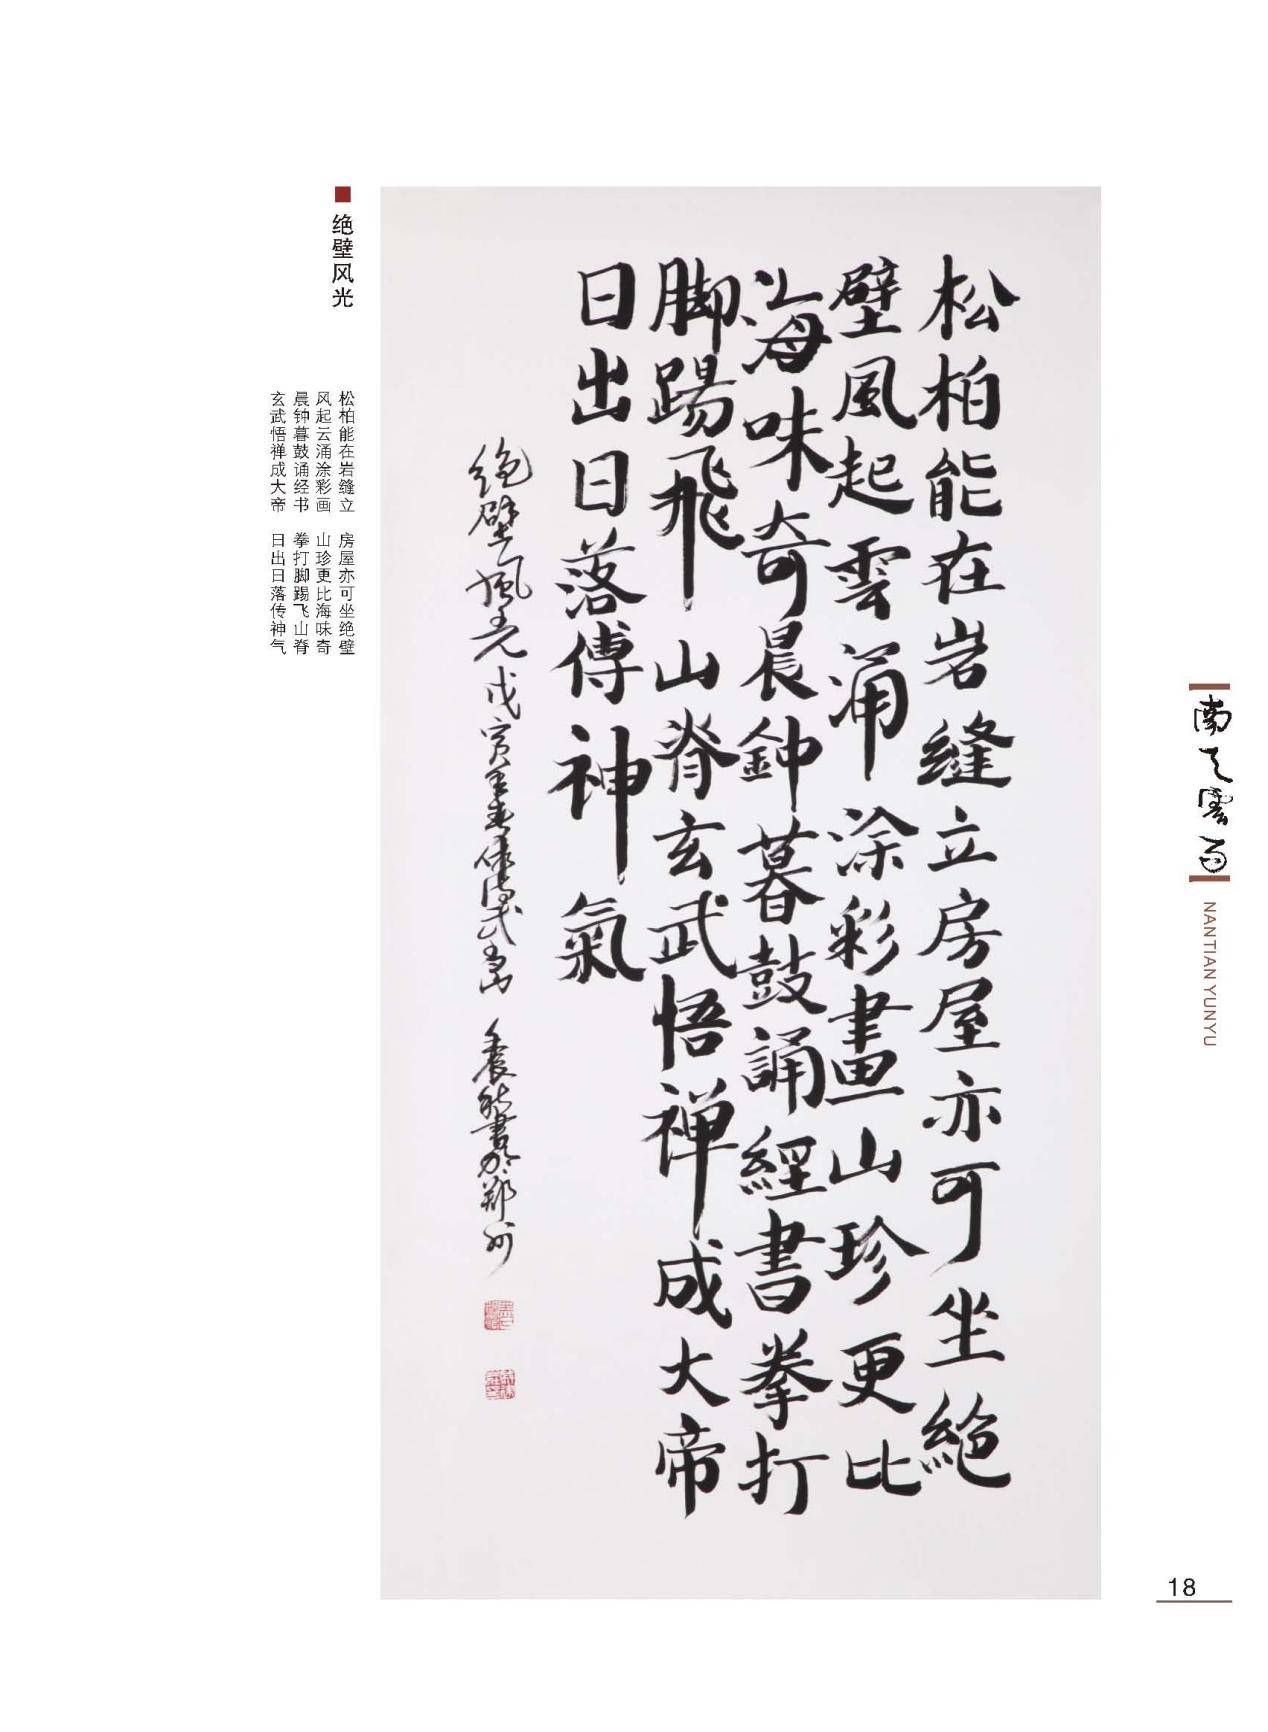 松柏能在岩缝立房屋亦可坐絶
壁風起雲涌涂彩畫山珍更比
海味奇晨鈡暮鼓誦經書拳打
脚踢飛山脊玄武悟禅成大帝
日出日落傳神氣
绝壁風光戊寅年春作
書於鄭州
绝壁风光
松柏能在岩缝立 房屋亦可坐绝壁
风起云涌涂彩画 山珍更比海味奇
晨钟暮鼓诵经书 拳打脚踢飞山脊
玄武悟禅成大帝 日出日落传神气
南天雲雨
NANTIAN YUNYU
18